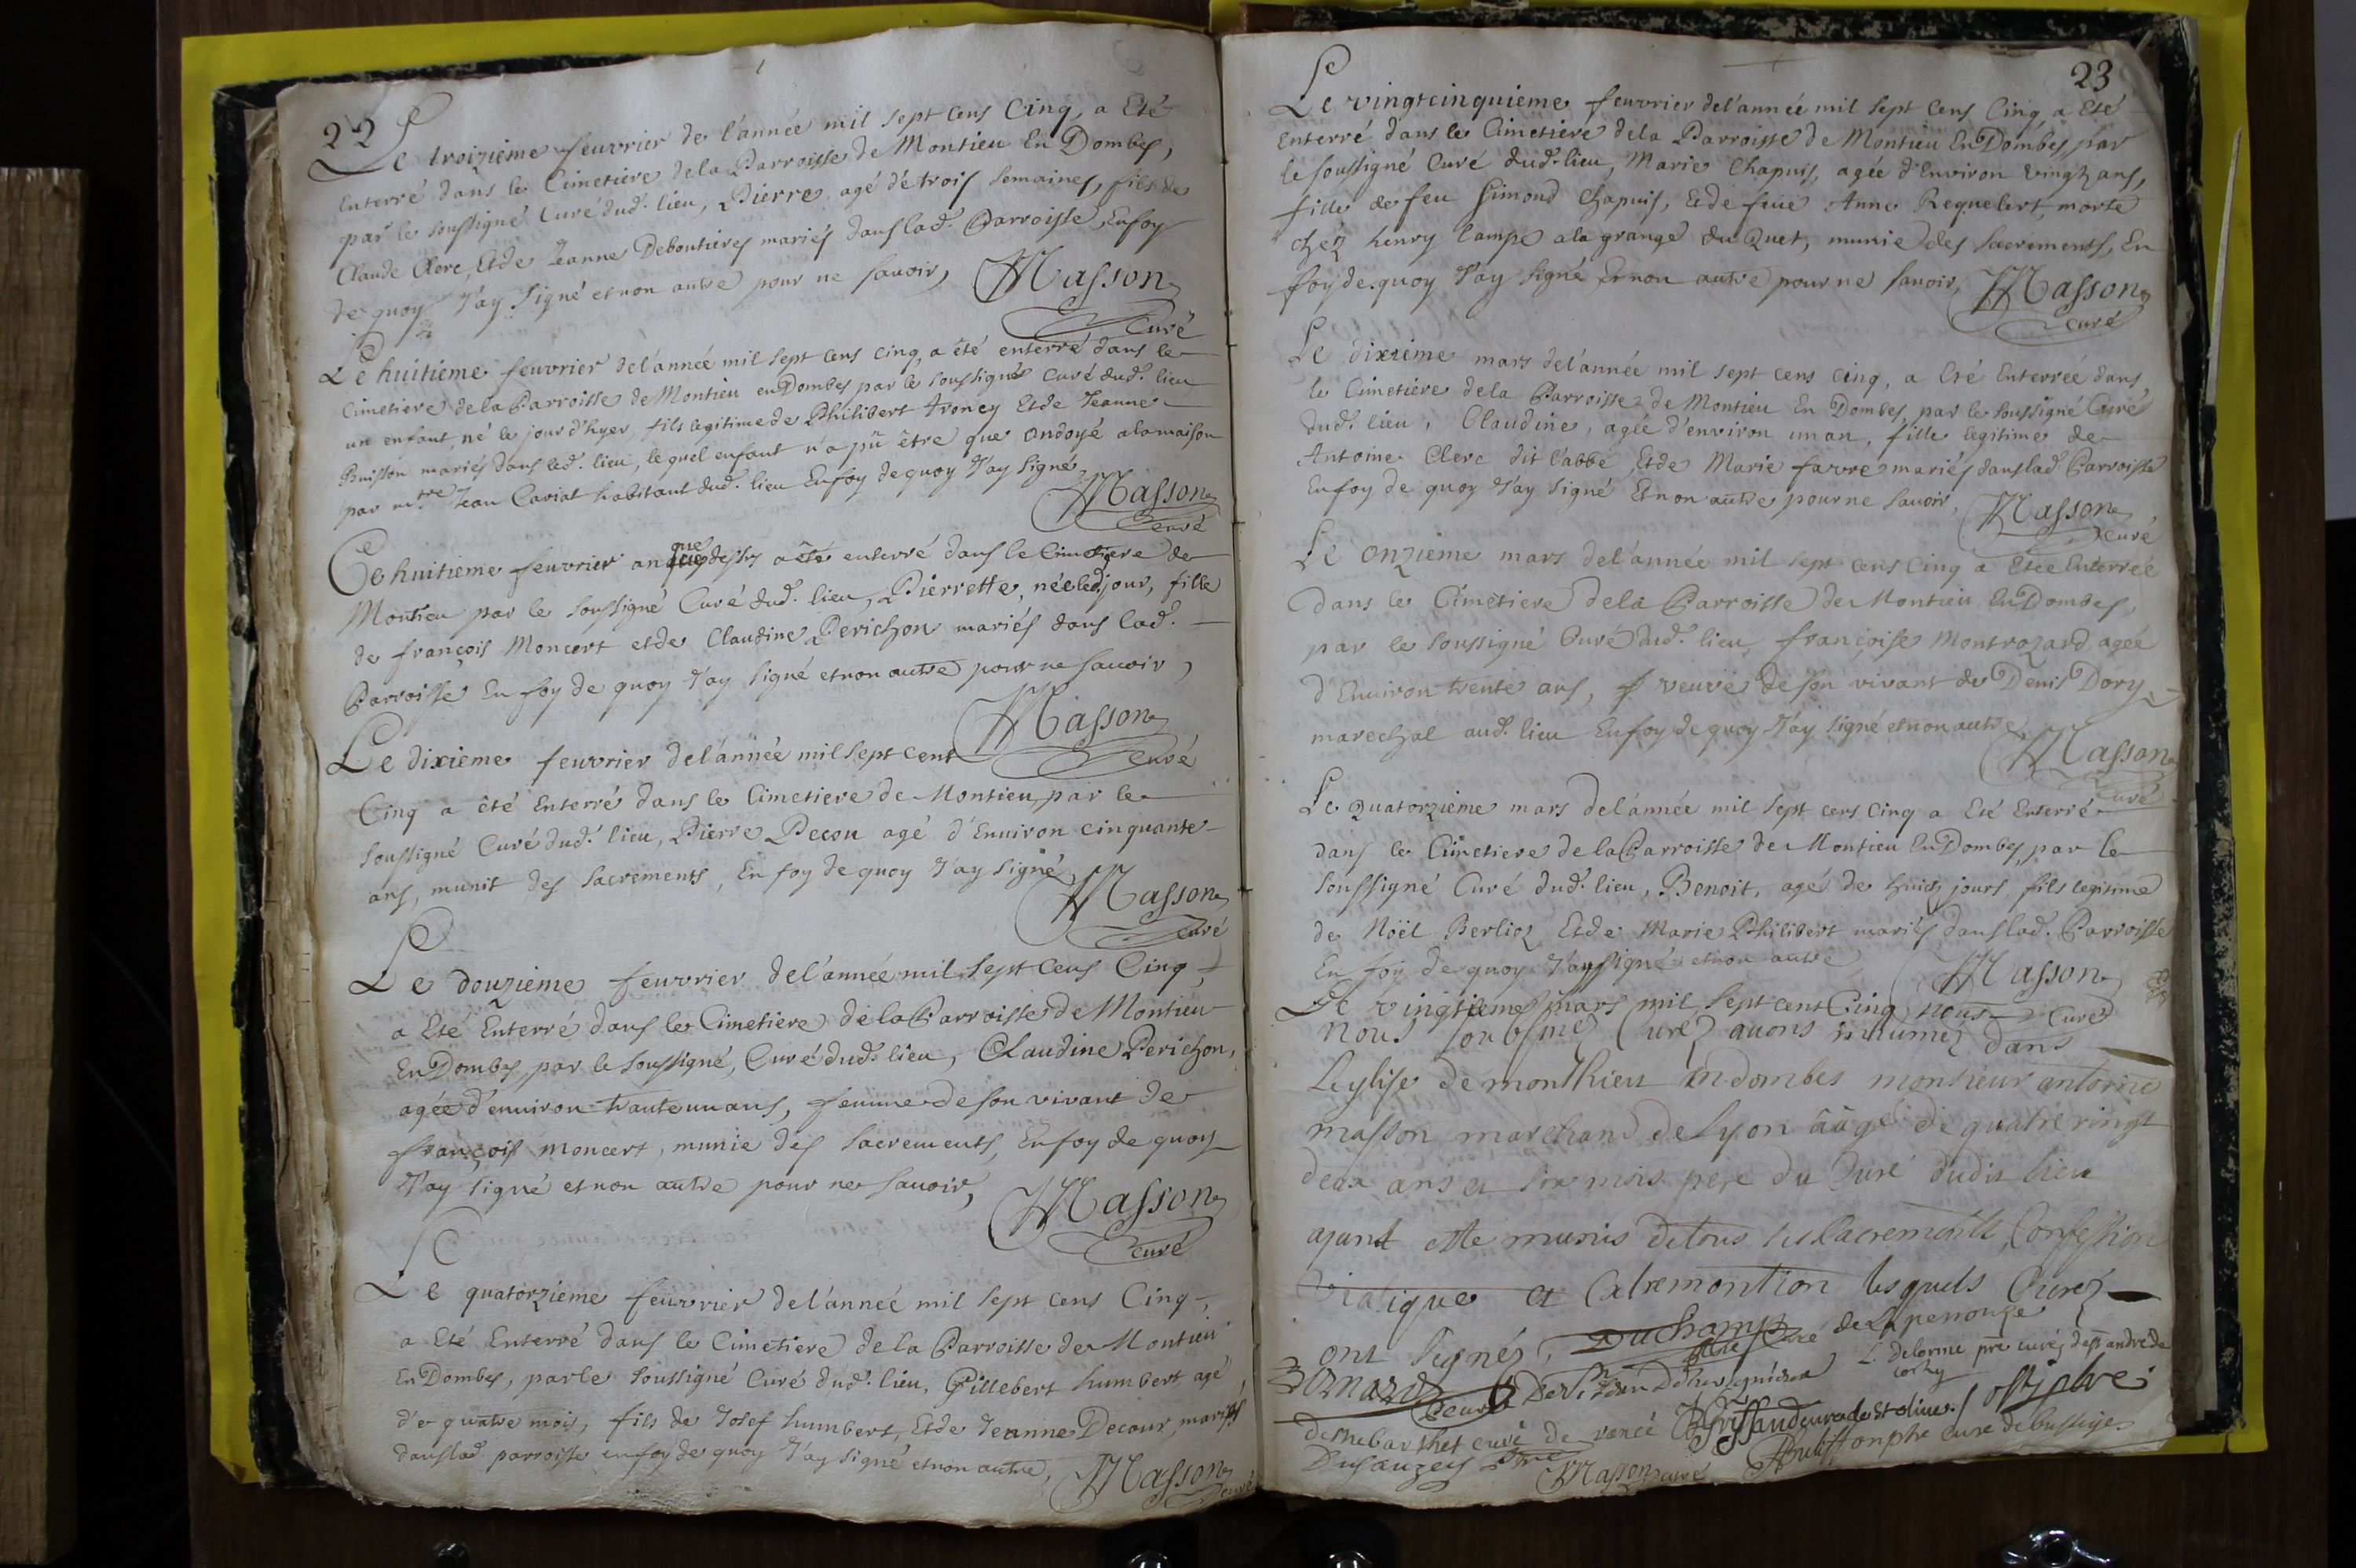 22
Le troizième feuvrier de l'année mil sept cens Cinq, a Eté
Enterré dans le Cimetiere de la Parroisse de Montieu En Dombes,
par le soussigné Curé dud. lieu, Pierre, agé de trois semaines, fils de
Claude Clerc, Et de Jeanne Deboutieres mariés dans lad. Parroisse, En foy
de quoy J'ay signé et non autre pour ne savoir,
Masson
Curé
Le huitième feuvrier de l'année mil sept cens cinq, a été enterré dans le
Cimetiere de la Parroisse de Montieu en Dombes par le soussigné Curé dud. lieu
un enfant, né le jour d'hyer fils legitime de Philibert Troncy Et de Jeanne
Buisson mariés dans led. lieu, lequel enfant n'a pû être que ondoyé a la maison
par mtre Jean Cariat habitant dud. lieu En foy de quoy J'ay signé
Masson
curé
Ce huitième feuvrier an que dessus a été enterré dans le Cimetiere de
Montieu par le soussigné Curé dud. lieu, Pierrette, née led. jour, fille
de françois Moncert et de Claudine Perichon mariés dans lad.
Parroisse En foy de quoy J'ay signé et non autre pour ne savoir,
Masson
curé
Le dixième feuvrier de l'année mil sept cent
Cinq a été Enterré dans le Cimetiere de Montieu par le
soussigné Curé dud. lieu, Pierre Pecou agé d'Environ cinquante
ans, munit des sacrements, En foy de quoy J'ay signé
Masson
curé
Le douzième feuvrier de l'année mil sept cens Cinq,
a Eté Enterré dans le Cimetiere de la Parroisse de Montieu
En Dombes, par le soussigné, Curé dud. lieu, Claudine Perichon,
agée d'environ trante un ans, femme de son vivant de
françois Moncert, munie des sacrements, En foy de quoy
J'ay signé et non autre pour ne savoir,
Masson
curé
Le quatorzième feuvrier de l'année mil sept cens Cinq,
a Eté Enterré dans le Cimetiere de la Parroisse de Montieu
En Dombes, par le soussigné Curé dud. lieu, Gillebert humbert agé
de quatre mois, fils de Josef humbert, Et de Jeanne Decour, mariés
dans lad. parroisse en foy de quoy J'ay signé et non autre,
Masson
curé
23
Le vingt cinquieme feuvrier de l'année mil sept cens Cinq, a Eté
Enterré dans le Cimetiere de la Parroisse de Montieu En Dombes, par
le soussigné Curé dud. lieu, Marie Chapuis, agée d'Environ vingt ans,
fille de feu Simond Chapuis, Et de feue Anne Requelert, morte
chéz henry lampe a la grange du Quet, munie des sacrements, En
foy de quoy J'ay signé Et non autre pour ne savoir,
Masson
curé
Le dixième mars de l'année mil sept cens cinq, a Eté Enterrée dans
le Cimetiere de la Parroisse de Montieu En Dombes, par le soussigné Curé
dud. lieu, Claudine, agée d'environ un an, fille legitime de
Antoine Clerc dit l'abbé Et de Marie favre mariés dans lad. Parroisse
En foy de quoy J'ay signé Et non autre pour ne savoir,
Masson
curé
Le onzième mars de l'année mil sept cens Cinq a Etée Enterrée
dans le Cimetiere de la Parroisse de Montieu En Dombes,
par le soussigné Curé dud. lieu françoise Montrozard agée
d'Environ trente ans, f veuve de son vivant de Denis Dory
marechal aud. lieu En foy de quoy J'ay signé et non autre
Masson
Curé
Le quatorzième mars de l'année mil sept cens Cinq a Eté Enterré
dans le Cimetiere de la Parroisse de Montieu En Dombes, par le
soussigné Curé dud. lieu, Benoit, agé de huict jours fils legitime
de Noël Berlioz Et de Marie Philibert mariés dans lad. Parroisse
En foy de quoy J'ay signé et non autre
Masson
Curé
Le vingtieme mars mil sept cent Cinq nous
nous soubsnez Curez avons inhumez dans
Leglise de monthieu En dombes monsieur antoine
masson marchand de Lyon ââgé de quatre vingt
deux ans et six mois pere du Curé dudit lieu
ayant esté munis de tous les sacrements Confession
Viatique et Extremontion lesquels Curez
ont signéz, Duchamp curé de Lapenouze
Bernard curé L. delorme pre curé de st andre de
corsy
Demebarthet curé de rancé
Dusauzey ptre Masson curé Buisson ptre cure de bussiges